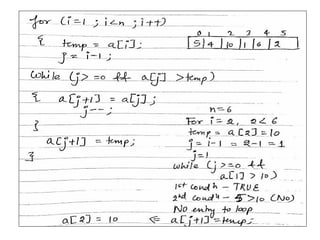 for (i=1 ; i<n ; i++)
0 1 2 3 4 5
{ temp = a[i];
5 | 4 | 10 | 1 | 6 | 2
j = i-1 ;
while (j >= 0 && a[j] > temp)
{ a[j+1] = a[j] ;
j-- ;
}
a[j+1] = temp;
}
n=6
For i = 2, 2 < 6
temp = a[2] = 10
j = i-1 = 2-1 = 1
j=1
while (j >= 0 &&
a[1] > 10)
1st condn - TRUE
2nd condn - 5 > 10 (NO)
NO entry to loop
a[2] = 10 ⇐ a[j+1] = temp;